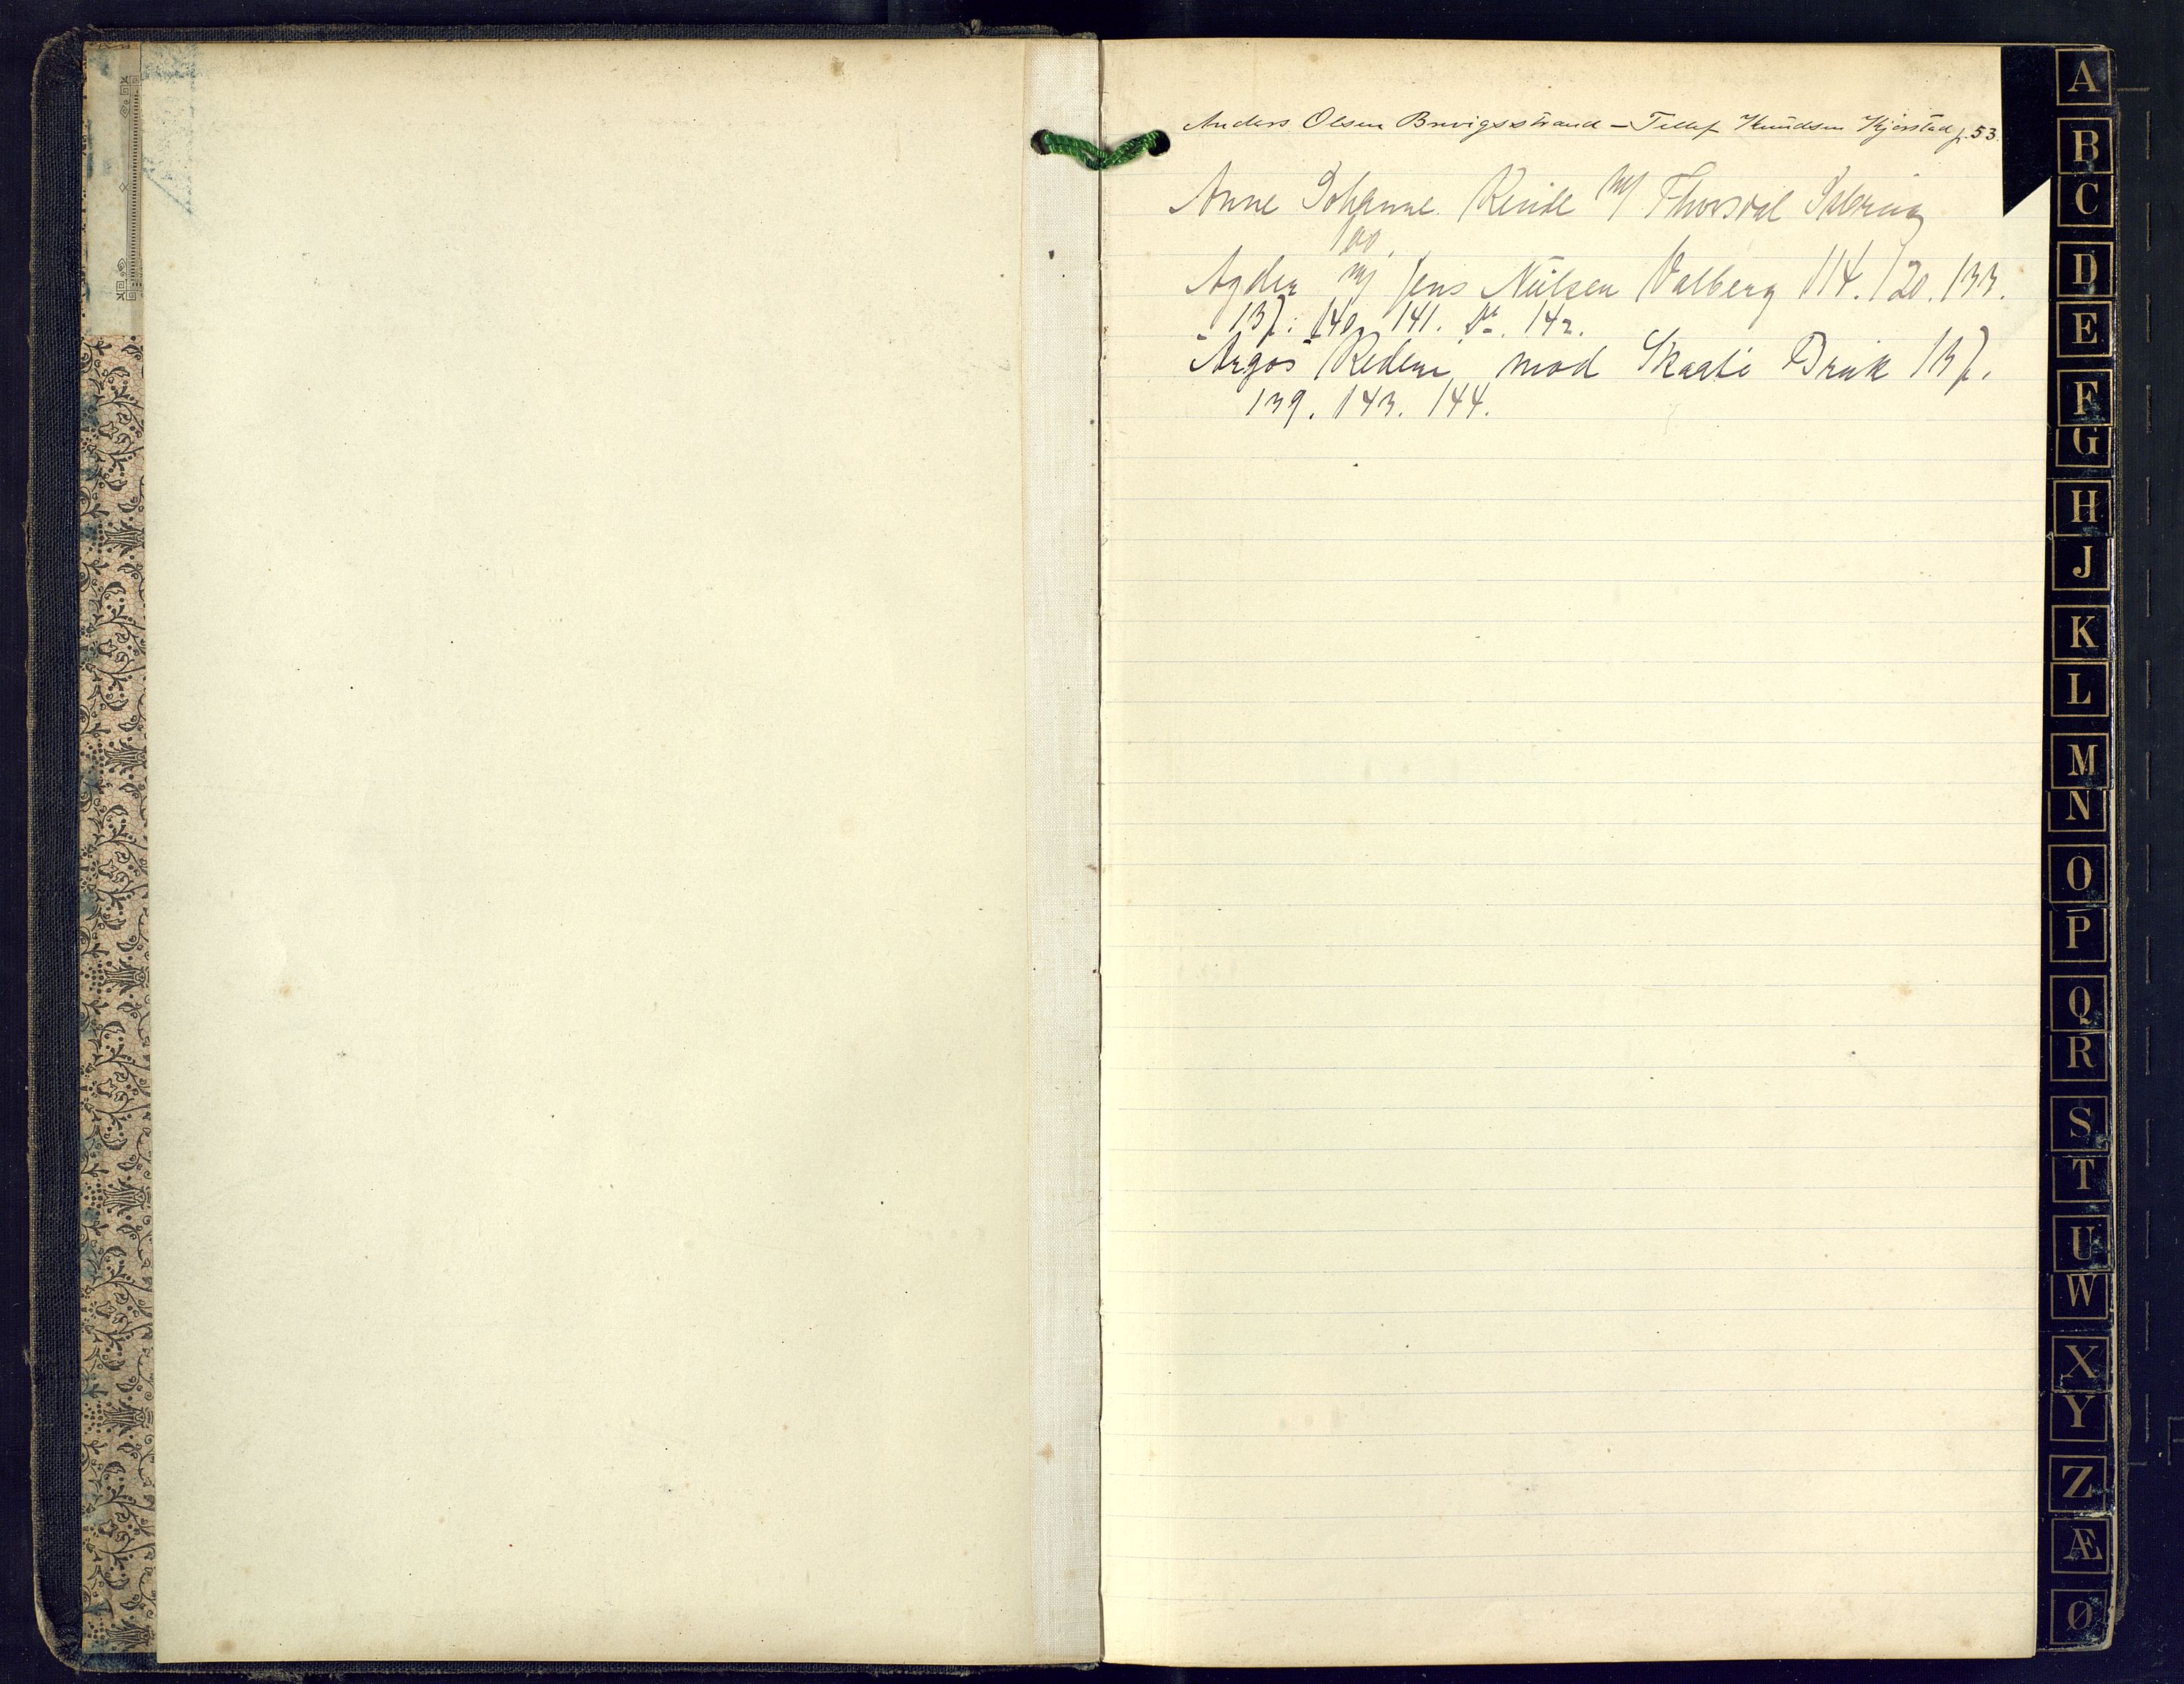 Anders Olsen Brevigsstrand – Tellef Knudsen Kjørstad p. 53.
Anne Johanne m/ Thorval
100.
Agder m/ Jens Nielsen Valberg 114. 120. 133.
137. 140. 141. 142.
Argos Rederi mod Skaali Bruk 137.
139. 143. 144.
A
B
C
D
E
F
G
H
J
K
L
M
N
O
P
Q
R
S
T
U
W
X
Y
Z
Æ
Ø